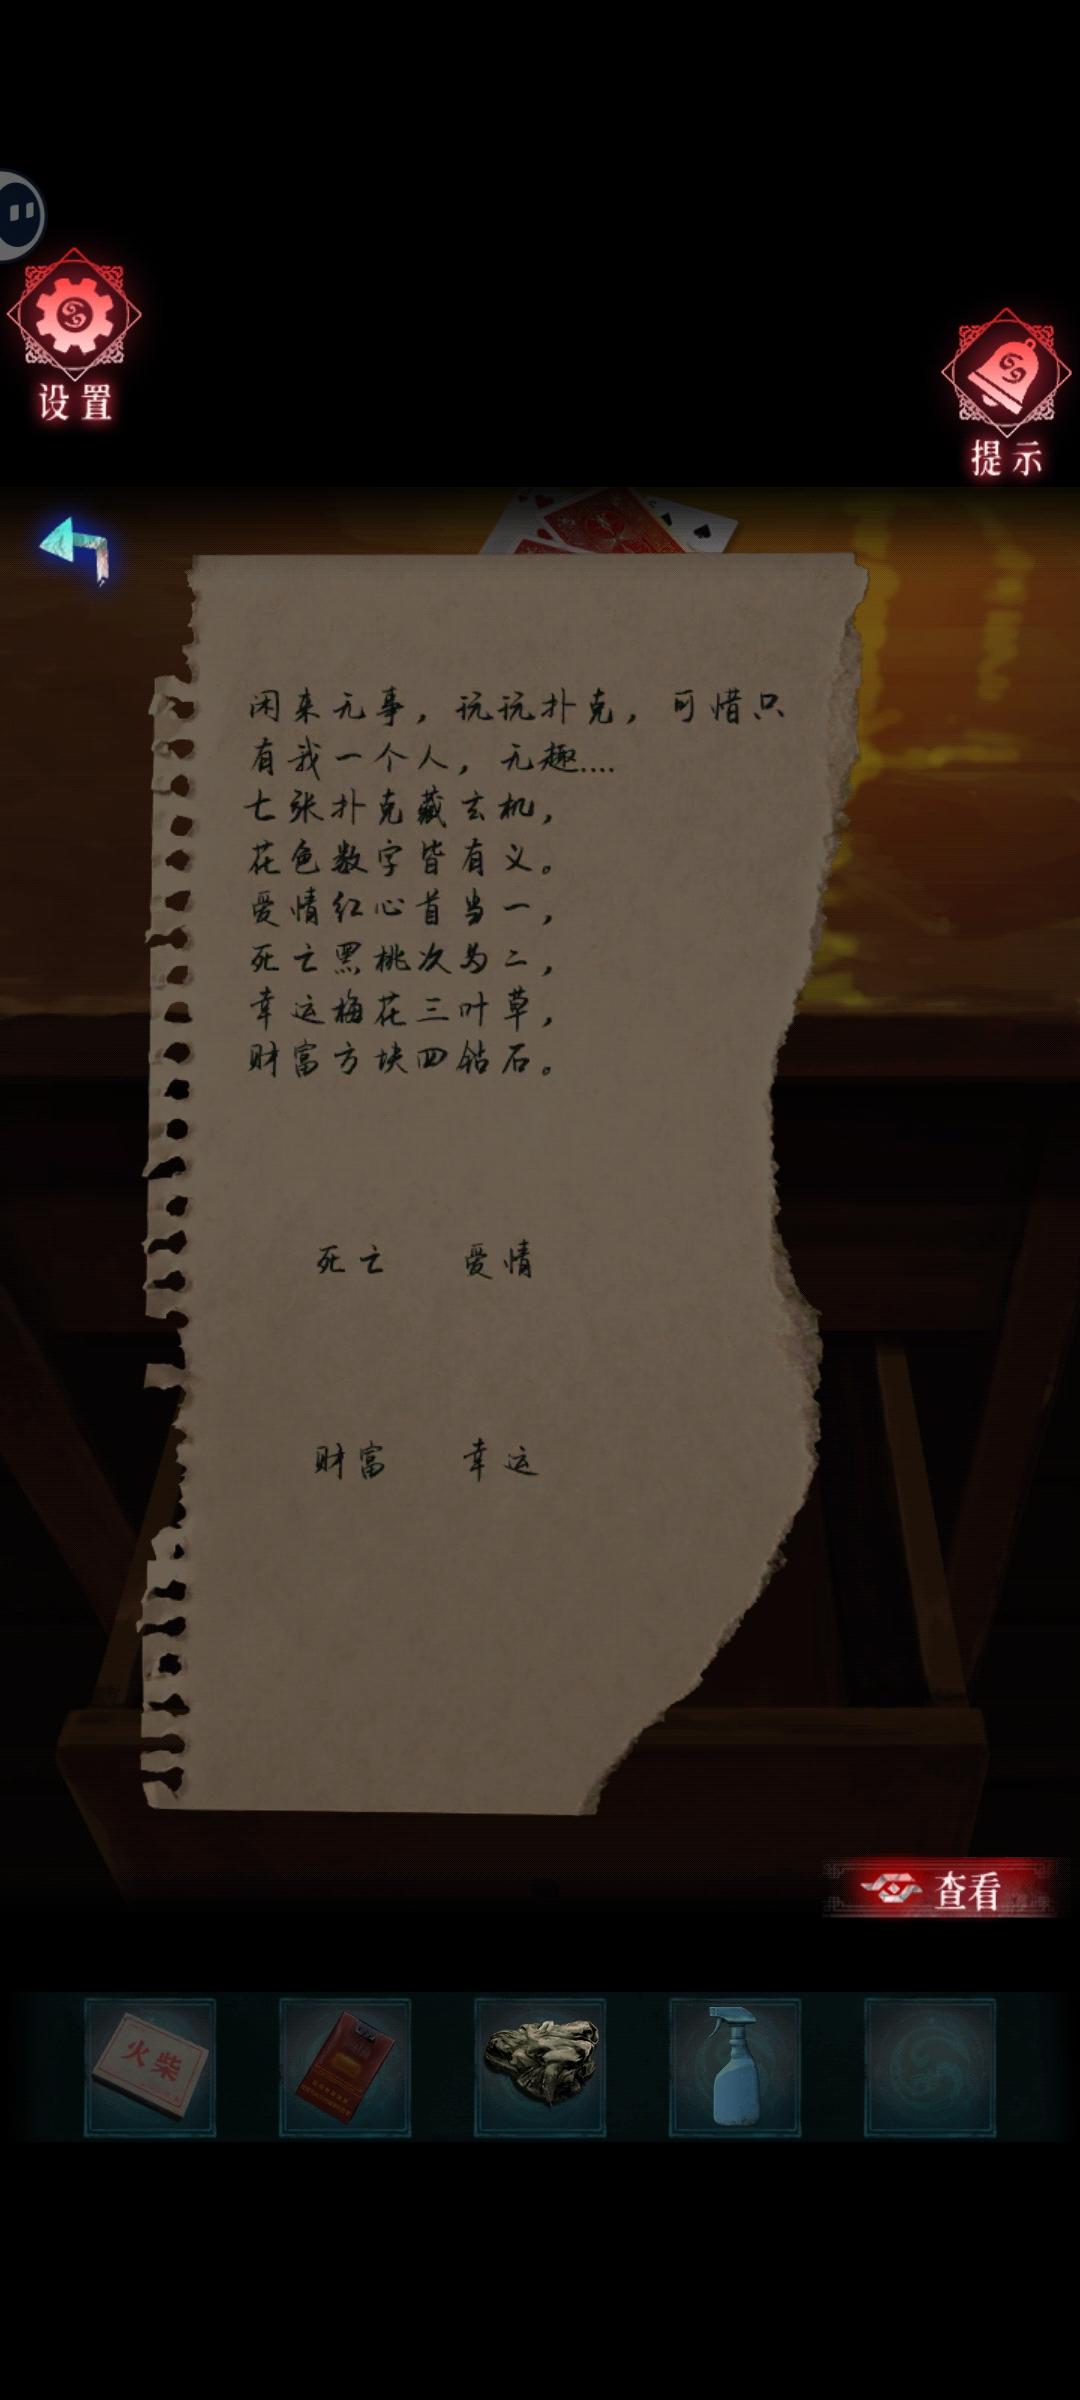 设置
提示
闲来无事，玩玩扑克，可惜只
有我一个人，无趣....
七张扑克藏玄机，
花色数字皆有义。
爱情红心首当一，
死亡黑桃次为二，
幸运梅花三叶草，
财富方块四钻石。
死亡 爱情
财富 幸运
查看
火柴